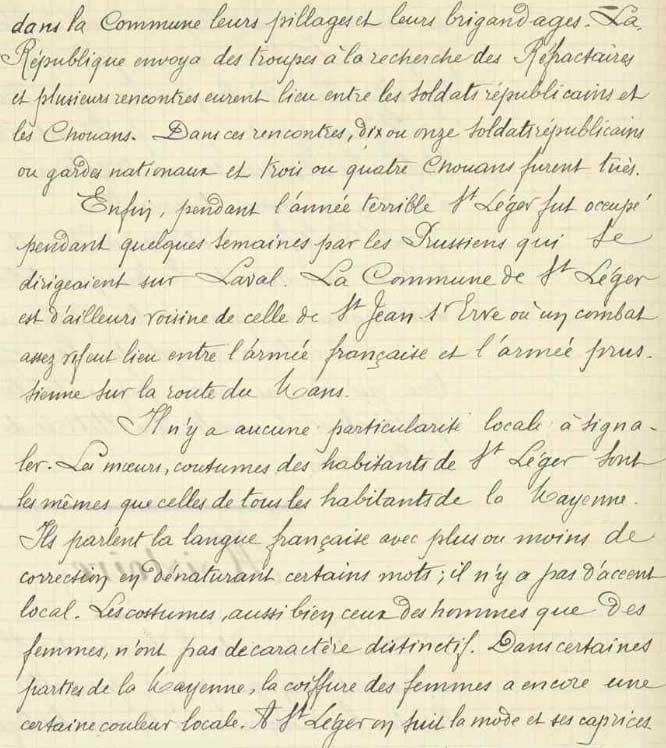 dans la Commune leurs pillages et leurs brigandages. La
République envoya des troupes à la recherche des Réfractaires
et plusieurs rencontres eurent lieu entre les soldats républicains et
les Chouans. Dans ces rencontres, dix ou onze soldats républicains
ou gardes nationaux et trois ou quatre Chouans furent tués.
Enfin, pendant l'année terrible St Léger fut occupé
pendant quelques semaines par les Prussiens qui se
dirigeaient sur Laval. La Commune de St Léger
est d'ailleurs voisine de celle de St Jean s/ Erve où un combat
assez vif eut lieu entre l'armée française et l'armée prus-
sienne sur la route du Mans.
Il n'y a aucune particularité locale à signa-
ler. Les mœurs, coutumes des habitants de St Léger sont
les mêmes que celles de tous les habitants de la Mayenne.
Ils parlent la langue française avec plus ou moins de
correction en dénaturant certains mots ; il n'y a pas d'accent
local. Les costumes, aussi bien ceux des hommes que des
femmes, n'ont pas de caractère distinctif. Dans certaines
parties de la Mayenne, la coiffure des femmes a encore une
certaine couleur locale. A St Léger on suit la mode et ses caprices.